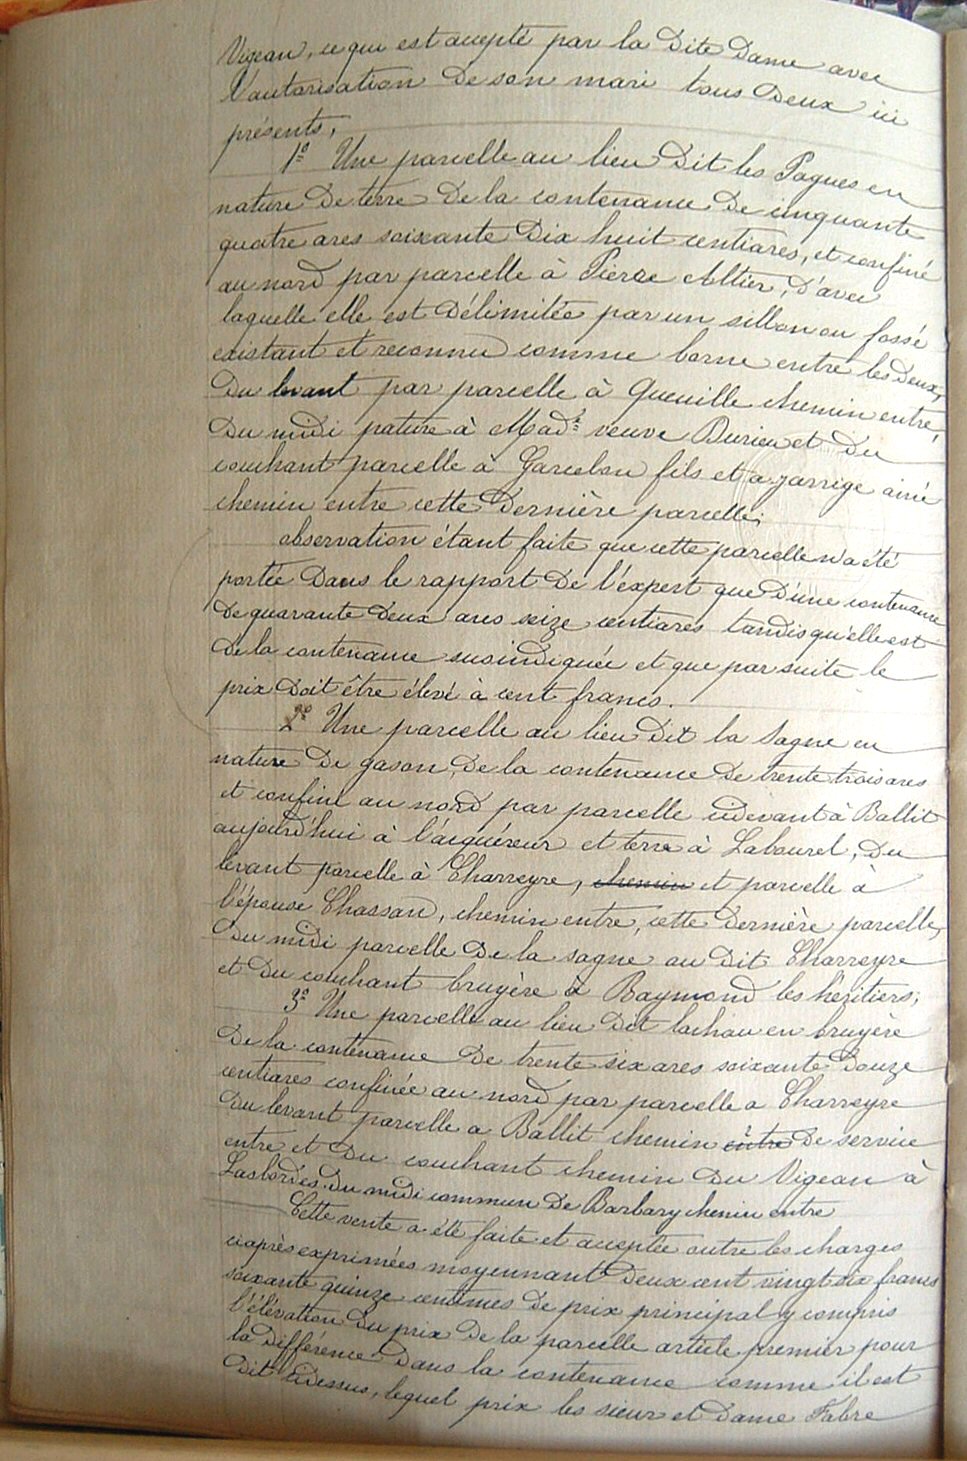 Vigean, ce qui est accepté par la Dite Dame avec
l'autorisation De son mari tous Deux ici
présents,
1º Une parcelle au lieu Dit les Pagues en
nature De terre De la contenance De cinquante
quatre ares soixante Dix huit centiares, et confiné
au nord par parcelle à Pierre Altier, D'avec
laquelle elle est Délimitée par un sillon ou fossé
existant et reconnu comme borne entre les Deux,
Du levant par parcelle à Queuille chemin entre,
Du midi pature à Made veuve Durieu et Du
couchant parcelle à Garcelon fils et a Jarrige ainé
chemin entre cette Dernière parcelle;
observation étant faite que cette parcelle n'a été
portée Dans le rapport De l'expert que D'une contenance
De quarante Deux ares seize centiares tandis qu'elle est
De la contenance susindiquée et que par suite le
prix Doit être élevé à cent francs.
2º Une parcelle au lieu Dit la Sagne en
nature De gason, De la contenance De trente trois ares
et confine au nord par parcelle cidevant à Ballit
aujourd'hui à l'acquéreur et terre à Labourel, Du
levant parcelle à Charreyre, chemin et parcelle à
l'épouse Chassan, chemin entre, cette Dernière parcelle,
Du midi parcelle De la sagne au Dit Charreyre
et Du couchant bruyère à Raymond les héritiers;
3º Une parcelle au lieu Dit lachau en bruyère
De la contenance De trente six ares soixante Douze
centiares confinée au nord par parcelle a Charreyre
Du levant parcelle a Ballit chemin entre De service
entre et Du couchant chemin Du Vigean à
Lasbordes. Du midi commun De Barbary chemin entre
Cette vente a été faite et acceptée outre les charges
ciaprès exprimées moyennant Deux cent vingt six francs
soixante quinze centimes De prix principal y compris
l'élévation Du prix De la parcelle article premier pour
la Différence Dans la contenance comme il est
Dit cidessus, lequel prix les sieur et Dame Fabre